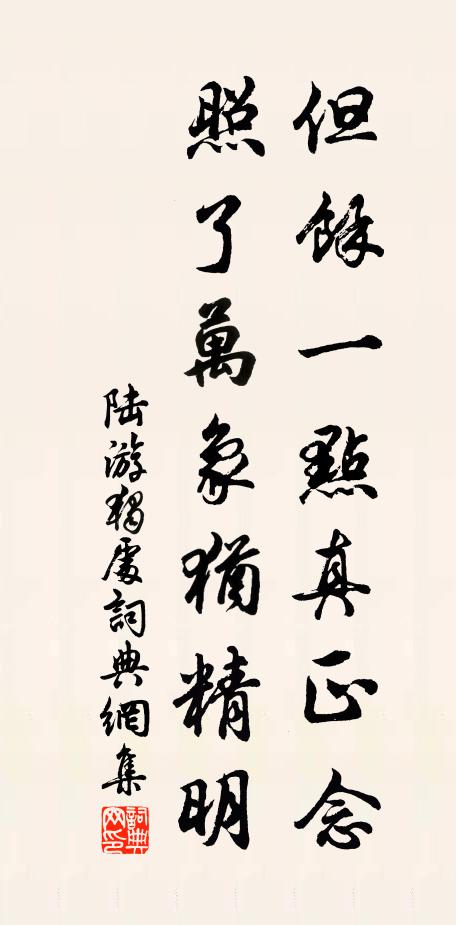 但餘一點真正念
照了萬象猶精明
陸游獨處詞典網集
詞典網印